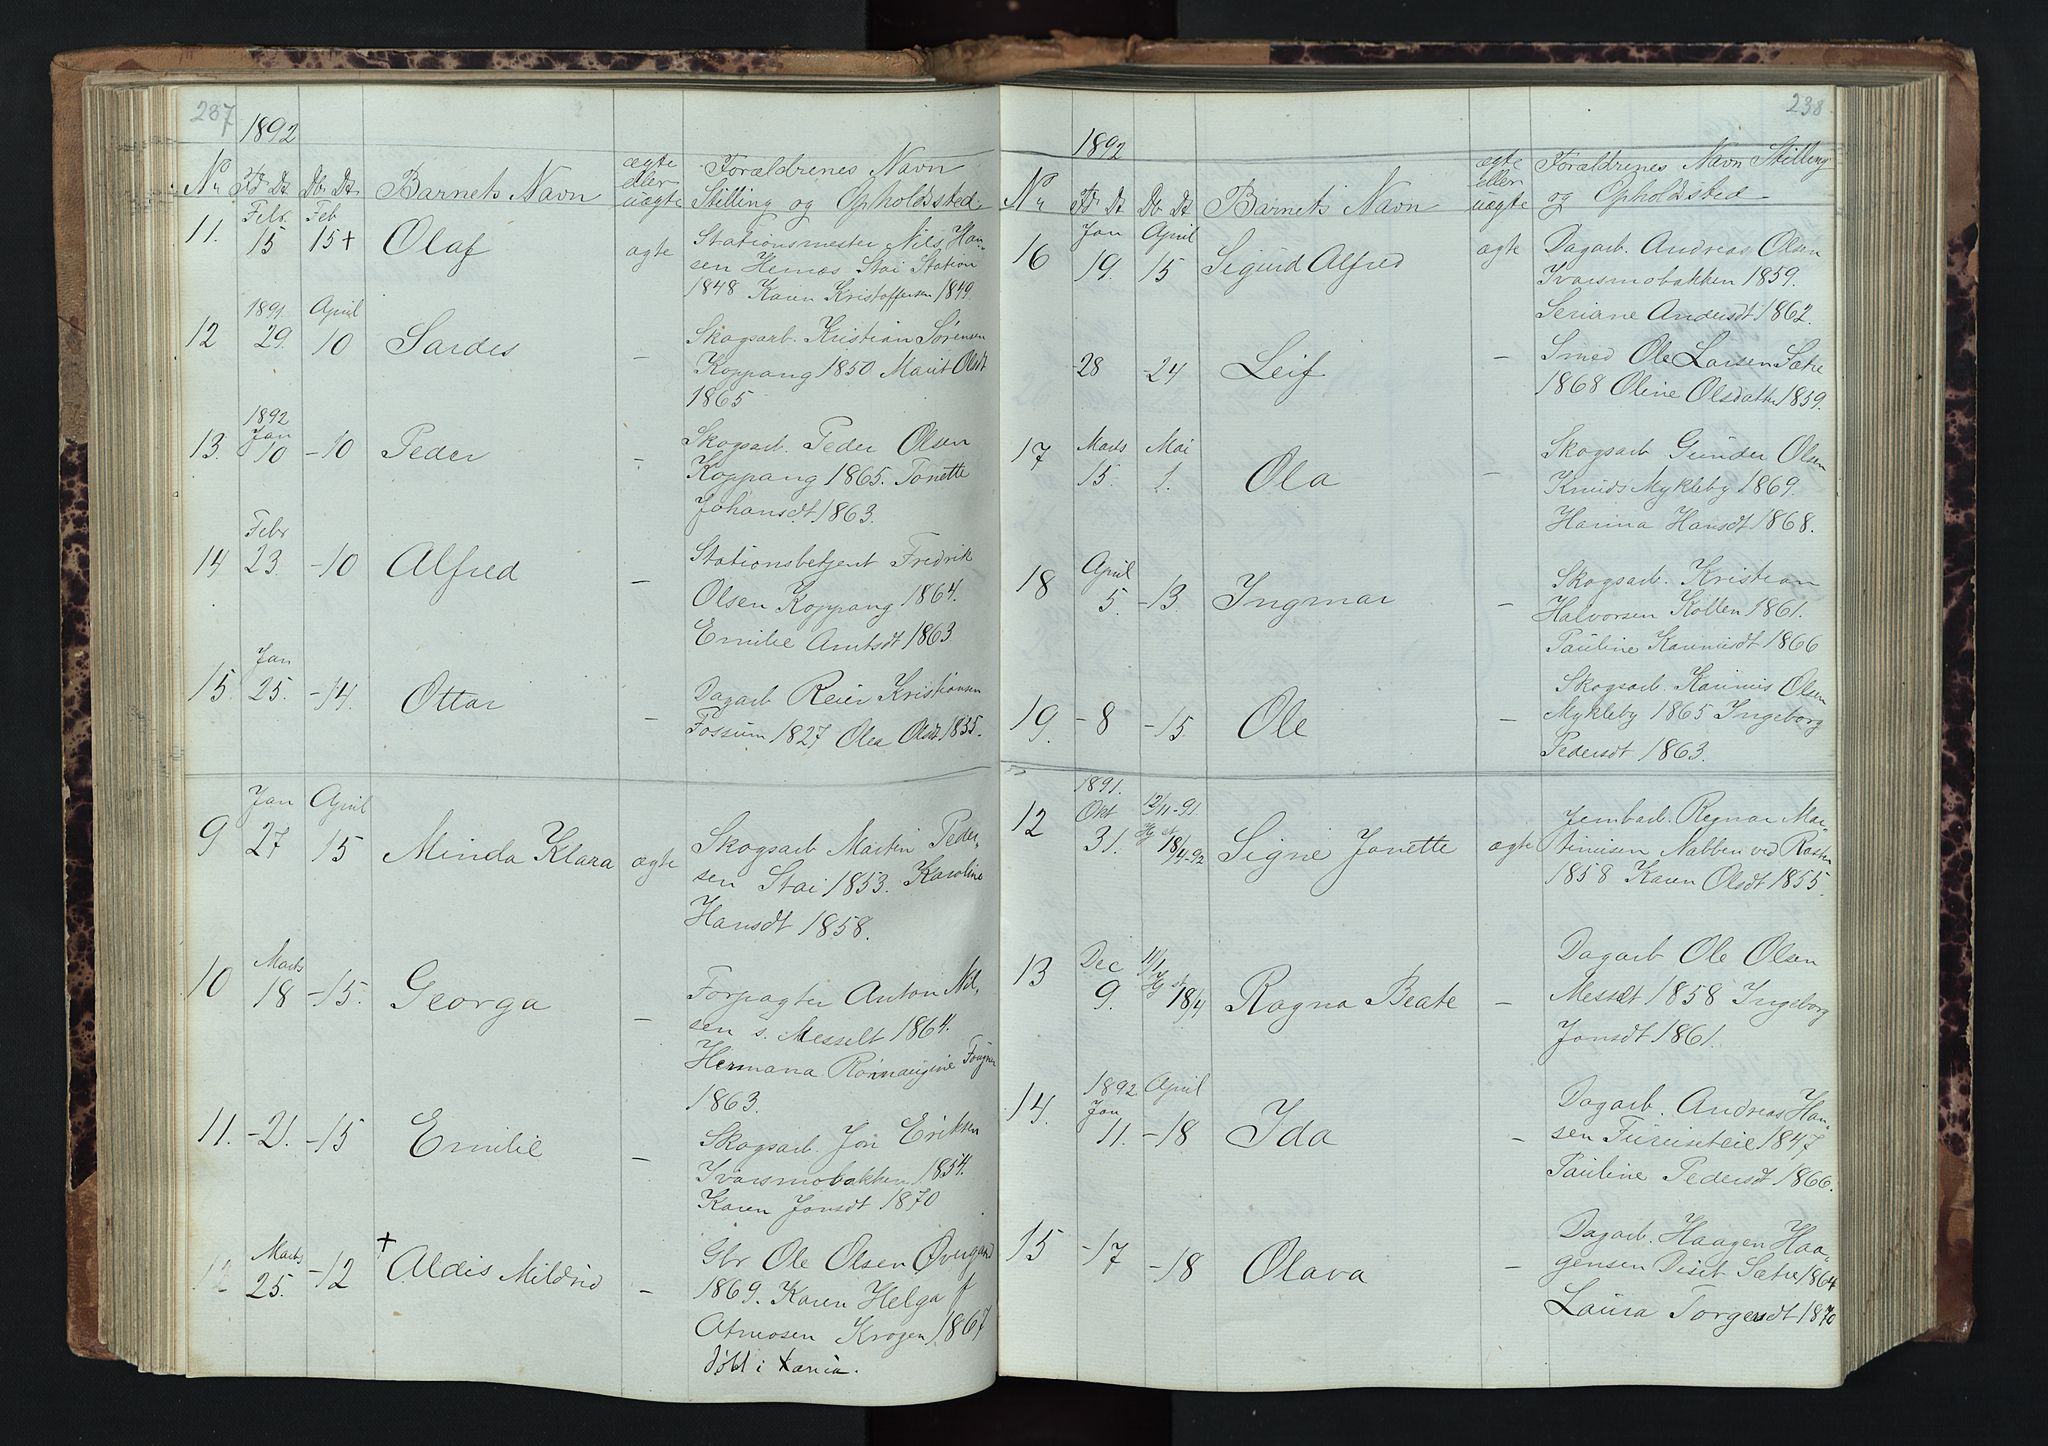 237
1892
No Fd Dt. Db. Dt. Barnets Navn ægte eller uægte Forældrenes Navn
Stilling og Opholdssted.
11. Febr. 15 Feb 15+ Olaf ægte Stationsmester Nils Han-
sen Hernæs Stai Station
1848 Karen Kristoffersen 1849.
12 1891. 29. April 10 Sardes – Skogsarb. Kristian Sørensen
Koppang 1850 Marit Olsdt
1865
13. 1892 Jan 10 -10 Peder – Skogsarb. Peder Olsen
Koppang 1865. Tonette
Johansdt. 1863.
14 Febr 23. -10 Alfred – Stationsbetjent Fredrik
Olsen Koppang 1864.
Emilie Arntsdt 1863
15. Jan 25. -14. Ottar – Dagarb Reier Kristiansen
Fossum 1827 Olea Olsdt 1855.
9 Jan 27 April 15 Minda Klara ægte Skogsarb Martin Peder-
sen Stai 1853. Karoline
Hansdt 1858.
10 Marts 18 -15. Georga – Forpagter Anton Nil-
sen s. Messelt 1864.
Hermana Rønnaugine Fougner
1863.
11. -21. -15 Emilie – Skogsarb. Jon Eriksen
Ivarsmobakken 1854.
Karen Jonsdt 1870
12 Marts 25. -12 + Aldis Mildrid – Gbr Ole Olsen Øvergard
1869. Karen Helga f
Atneosen Krogen 1867
død i
238
1892
No Fd Dt. Db. Dt Barnets Navn ægte eller uægte Forældrenes Navn Stilling
og Opholdssted
16 Jan 19. April 15 Sigurd Alfred ægte Dagarb. Andreas Olsen
Ivarsmobakken 1859.
Seriane Andersdt 1862.
-28 -24 Leif – Smed Ole Larsen Sætre
1868 Oline Olsdatter 1859.
17 Marts 15. Mai 1. Ola – Skogsarb Gunder Olsen
Knuds Mykleby 1869.
Hanna Hansdt 1868.
18 April 5. -13. Ingmar – Skogsarb. Kristian
Halvorsen Kolten 1861.
Pauline Rasmusdt 1866
19. -8 -15 Ole – Skogsarb. Rasmus Olsen
Mykleby 1865 Ingeborg
Pedersdt 1863.
12 1891. Okt 31. 12/11-91. Hj st 18/4-92 Signe Jonette ægte Jernbarb. Regnar Mar-
tinisen Nabben ved Rasten
1858 Karen Olsdt 1855.
13 Dec 9. 11/1 Hj st 18/4 Ragna Beate – Dagarb Ole Olsen
Messelt 1858 Ingeborg
Jonsdt 1861.
14. 1892 Jan 11. April -18 Ida – Dagarb. Andreas Han-
sen Furuseteie 1847
Pauline Pedersdt 1866.
15 -17 -18 Olava – Dagarb. Haagen Haa-
gensen Diset Sætre 1864
Laura Torgersdt 1870